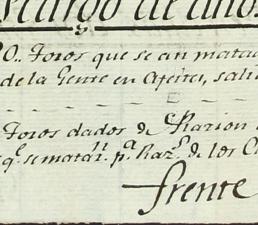 cargo de años
0.. Toros que se an mata
de la Gente en Afeites, sali
Toros dados de Razion
q.e se matar.n p.a Raz.s de los C
frente